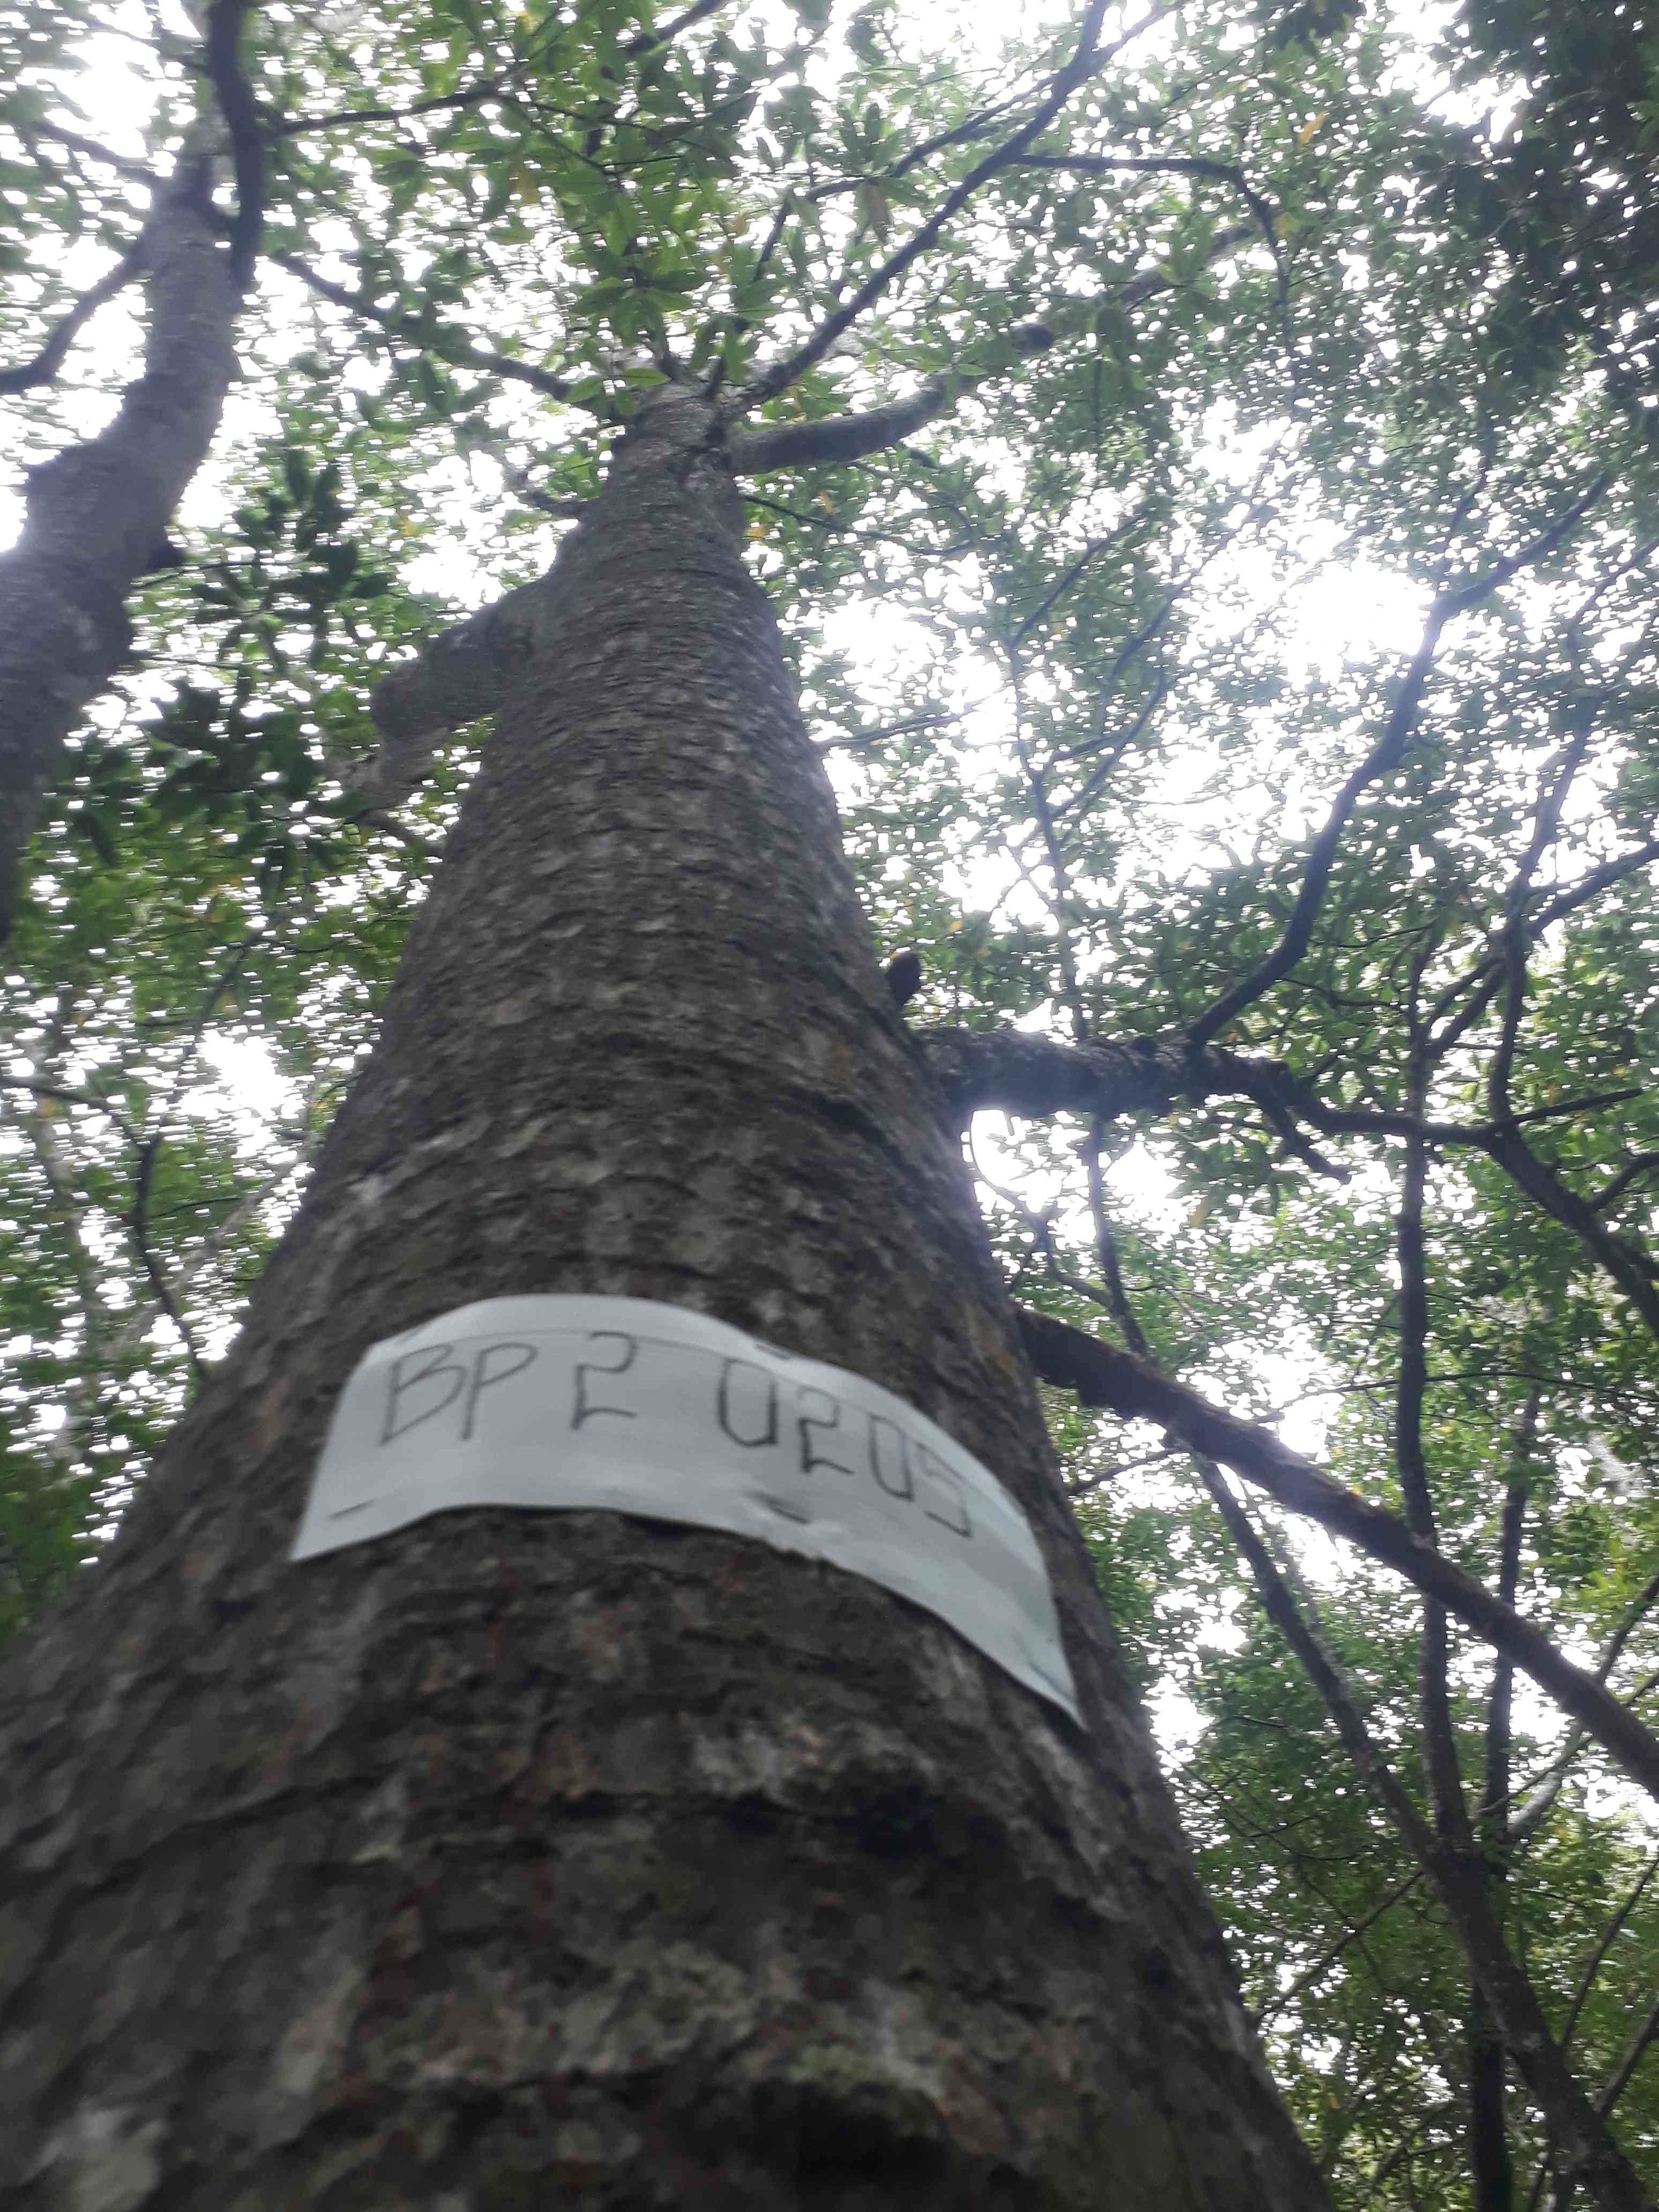 BP 2 0205